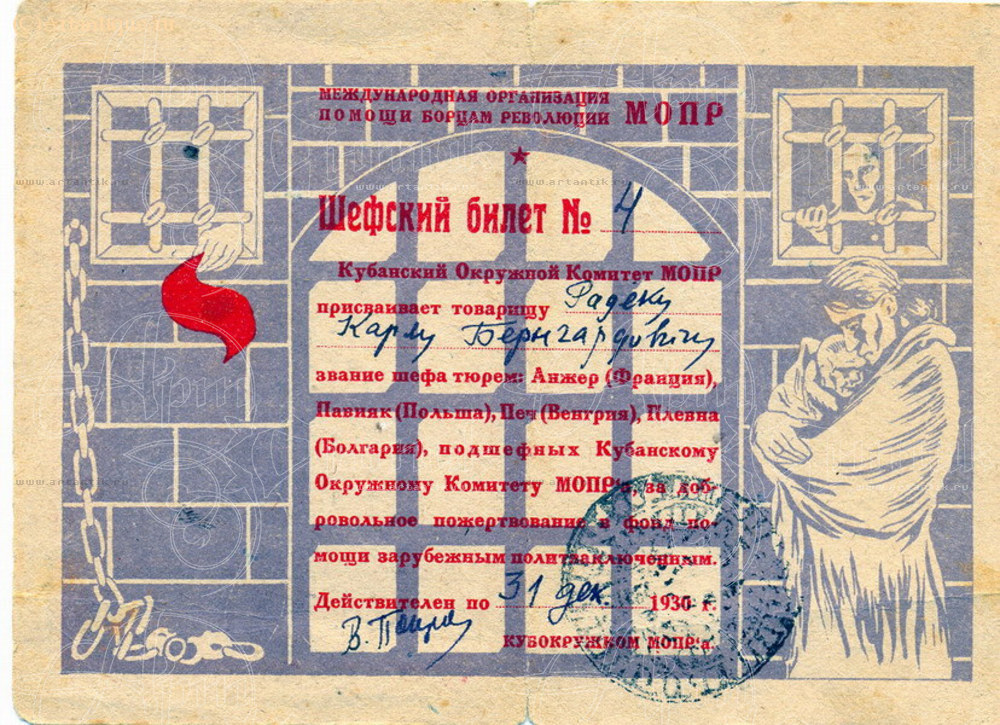 МЕЖДУНАРОДНАЯ ОРГАНИЗАЦИЯ
ПОМОЩИ БОРЦАМ РЕВОЛЮЦИИ МОПР
Шефский билет № 4
Кубанский Окружной Комитет МОПР
присваивает товарищу Радеку
Карлу Бернгардовичу
звание шефа тюрем: Анжер (Франция),
Павияк (Польша), Печ (Венгрия), Плевна
(Болгария), подшефных Кубанскому
Окружному Комитету МОПР'а, за доб-
ровольное пожертвование в фонд по-
мощи зарубежным политзаключенным.
Действителен по 31 дек 1930 г.
КУБОКРУЖКОМ МОПР'а.
www.artantik.ru